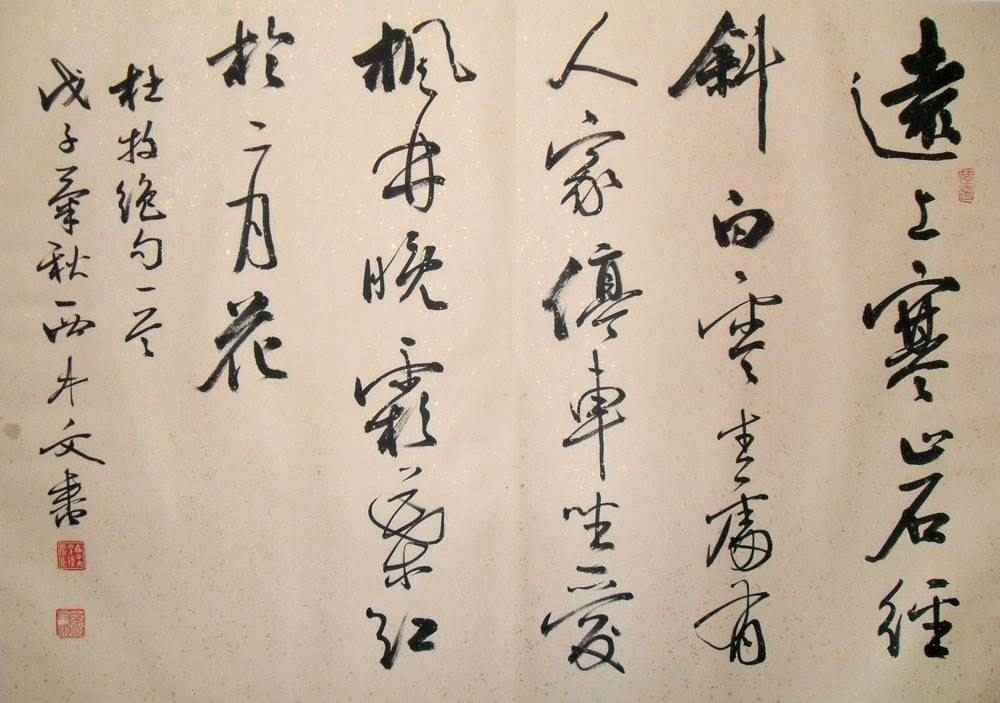 遠上寒山石徑
斜白雲生處有
人家停車坐愛
楓林晚霜葉紅
於二月花
杜牧絕句一首
戊子肇秋西文書